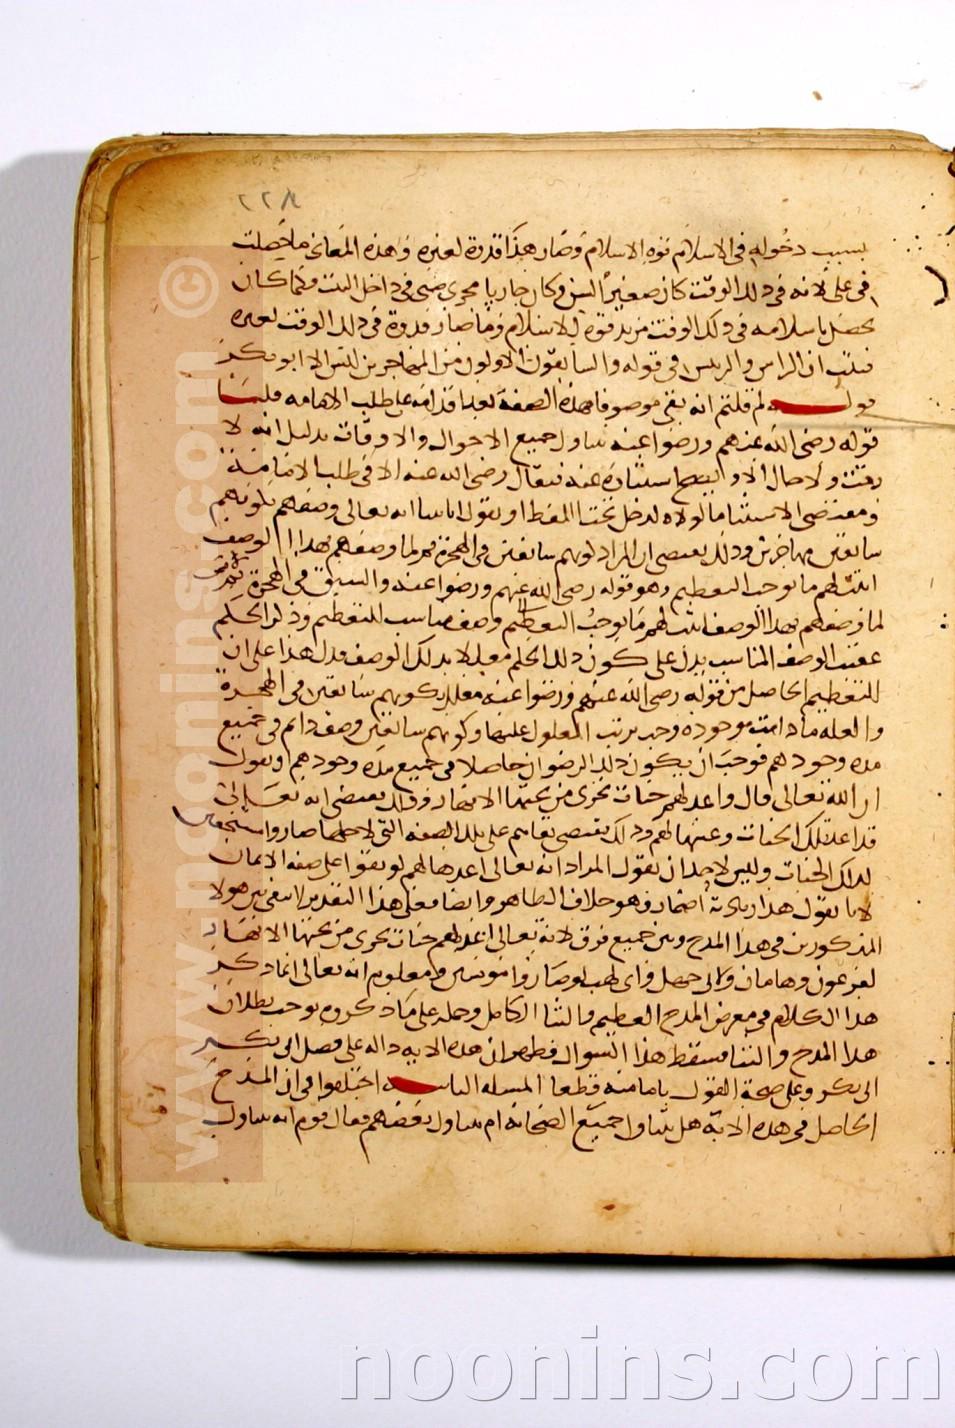 ٢٢٨
بسبب دخوله في الاسلام قوه الاسلام وصار هذا قدوة لغيره وهذه المعانى ما حصلت
فى على لانه في ذلك الوقت كان صغير السن وكان جاريا مجرى صبى في داخل البيت وما كان
يحصل باسلامه في ذلك الوقت مزيد قوة للاسلام وما صار قدوة في ذلك الوقت لغيره
فثبت ان الراس والرييس في قوله والسابقون الاولون من المهاجرين ليس الا ابو بكر
قوله لم قلتم انه بقى موصوفا بهذه الصفة بعد اقدامه على طلب الامامه قلنا
قوله رضى الله عنهم ورضوا عنه يتناول جميع الاحوال والاوقات بدليل انه لا
وقت ولا حال الا ويصح استثناؤه عنه فيقال رضى الله عنه الا فى طلب الامامة
ومقتضى الاستثنا ما لولاه لدخل تحت اللفظ او نقول انا بينا انه تعالى وصفهم بكونهم
سابقين مهاجرين وذلك يقتضى ان المراد كونهم سابقين فى الهجرة ثم لما وصفهم بهذا الوصف
اثبت لهم ما يوجب التعظيم وهو قوله رضى الله عنهم ورضوا عنه والسبق فى الهجرة
لما وصفهم بهذا الوصف اثبت لهم ما يوجب التعظيم وصف مناسب للتعظيم وذكر الحكم
عقيب الوصف المناسب يدل على كون ذلك الحكم معللا بذلك الوصف فدل هذا على ان
للتعظيم الحاصل من قوله رضى الله عنهم ورضوا عنه معلل بكونهم سابقين فى الهجرة
والعله ما دامت موجوده وجب ترتب المعلول عليها وكونهم سابقين وصف دايم فى جميع
مده وجودهم فوجب ان يكون ذلك الرضوان حاصلا فى جميع مده وجودهم او نقول
ان الله تعالى قال واعد لهم جنات تجرى من تحتها الانهار وذلك يقتضى انه تعالى
قد اعد تلك الجنات وعينها لهم وذلك يقتضى بقاهم على تلك الصفه التى لاجلها صاروا مستحقين
لتلك الجنات وليس لاحد ان يقول المراد انه تعالى اعدها لهم لو بقوا على صفه الايمان
لانا نقول هذا زيادة اضمار وهو خلاف الظاهر وايضا فعلى هذا التقدير لا يبقى بين هولا
المذكورين فى هذا المدح وبين جميع فرق لانه تعالى اعد لهم جنات تجرى من تحتها الانهار
لفرعون وهامان ولابى جهل وابى لهب لو صاروا مومنين ومعلوم انه تعالى انما ذكر
هذا الكلام فى معرض المدح العظيم والثنا الكامل وحمله على ما ذكروه يوجب بطلان
هذا المدح والثنا فسقط هذا السوال فظهر ان هذه الايه داله على فضل ابى بكر
ابى بكر وعلى صحة القول بامامته قطعا المسله الثانيه اختلفوا فى ان المدح
الحاصل فى هذه الاية هل يتناول جميع الصحابه ام يتناول بعضهم فقال قوم انه يتناول
www.noonins.com ©
noonins.com